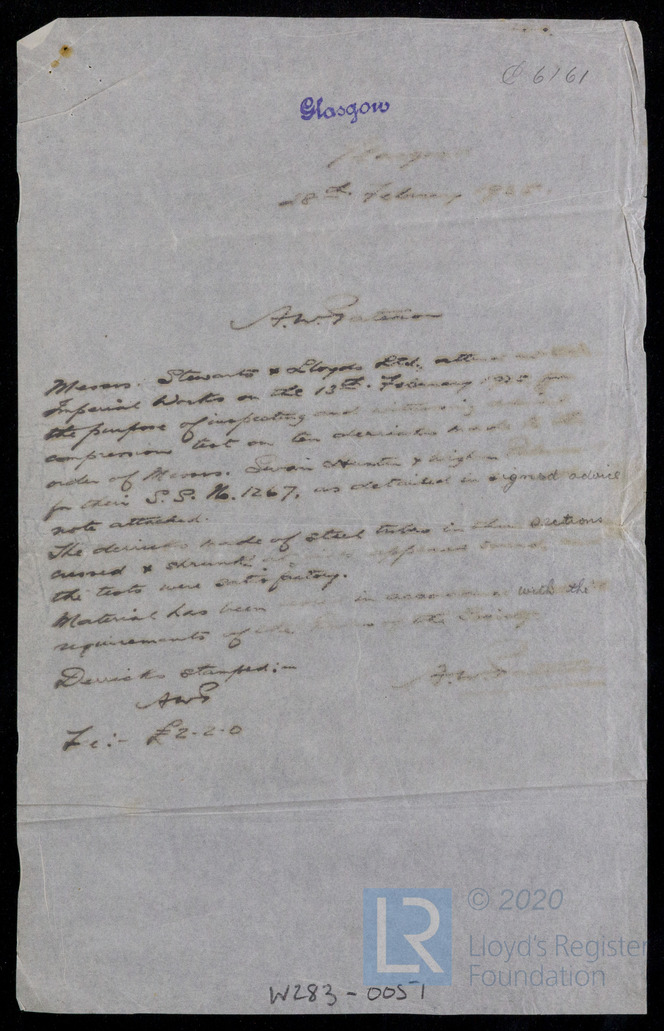 C 6761
Glasgow
Glasgow
28th February 1925.
A.W.
Messrs. Stewarts & Lloyds Ltd.,
Imperial Works on the 13th February 1925 for
the purpose of inspecting and witnessing
compression test on ten derricks made to the
order of Messrs. Swan Hunter & Wigham
for their S.S. No. 1267, as detailed in signed advice
note attached.
The derricks made of steel tubes in sections
& shrunk appeared sound,
the tests were satisfactory.
Material has been in accordance with the
requirements of the Rules of the Society
Derricks stamped:-
A.W.
AWG
Fee:- £2-2-0
LR
© 2020
Lloyd's Register
Foundation
W283-0051